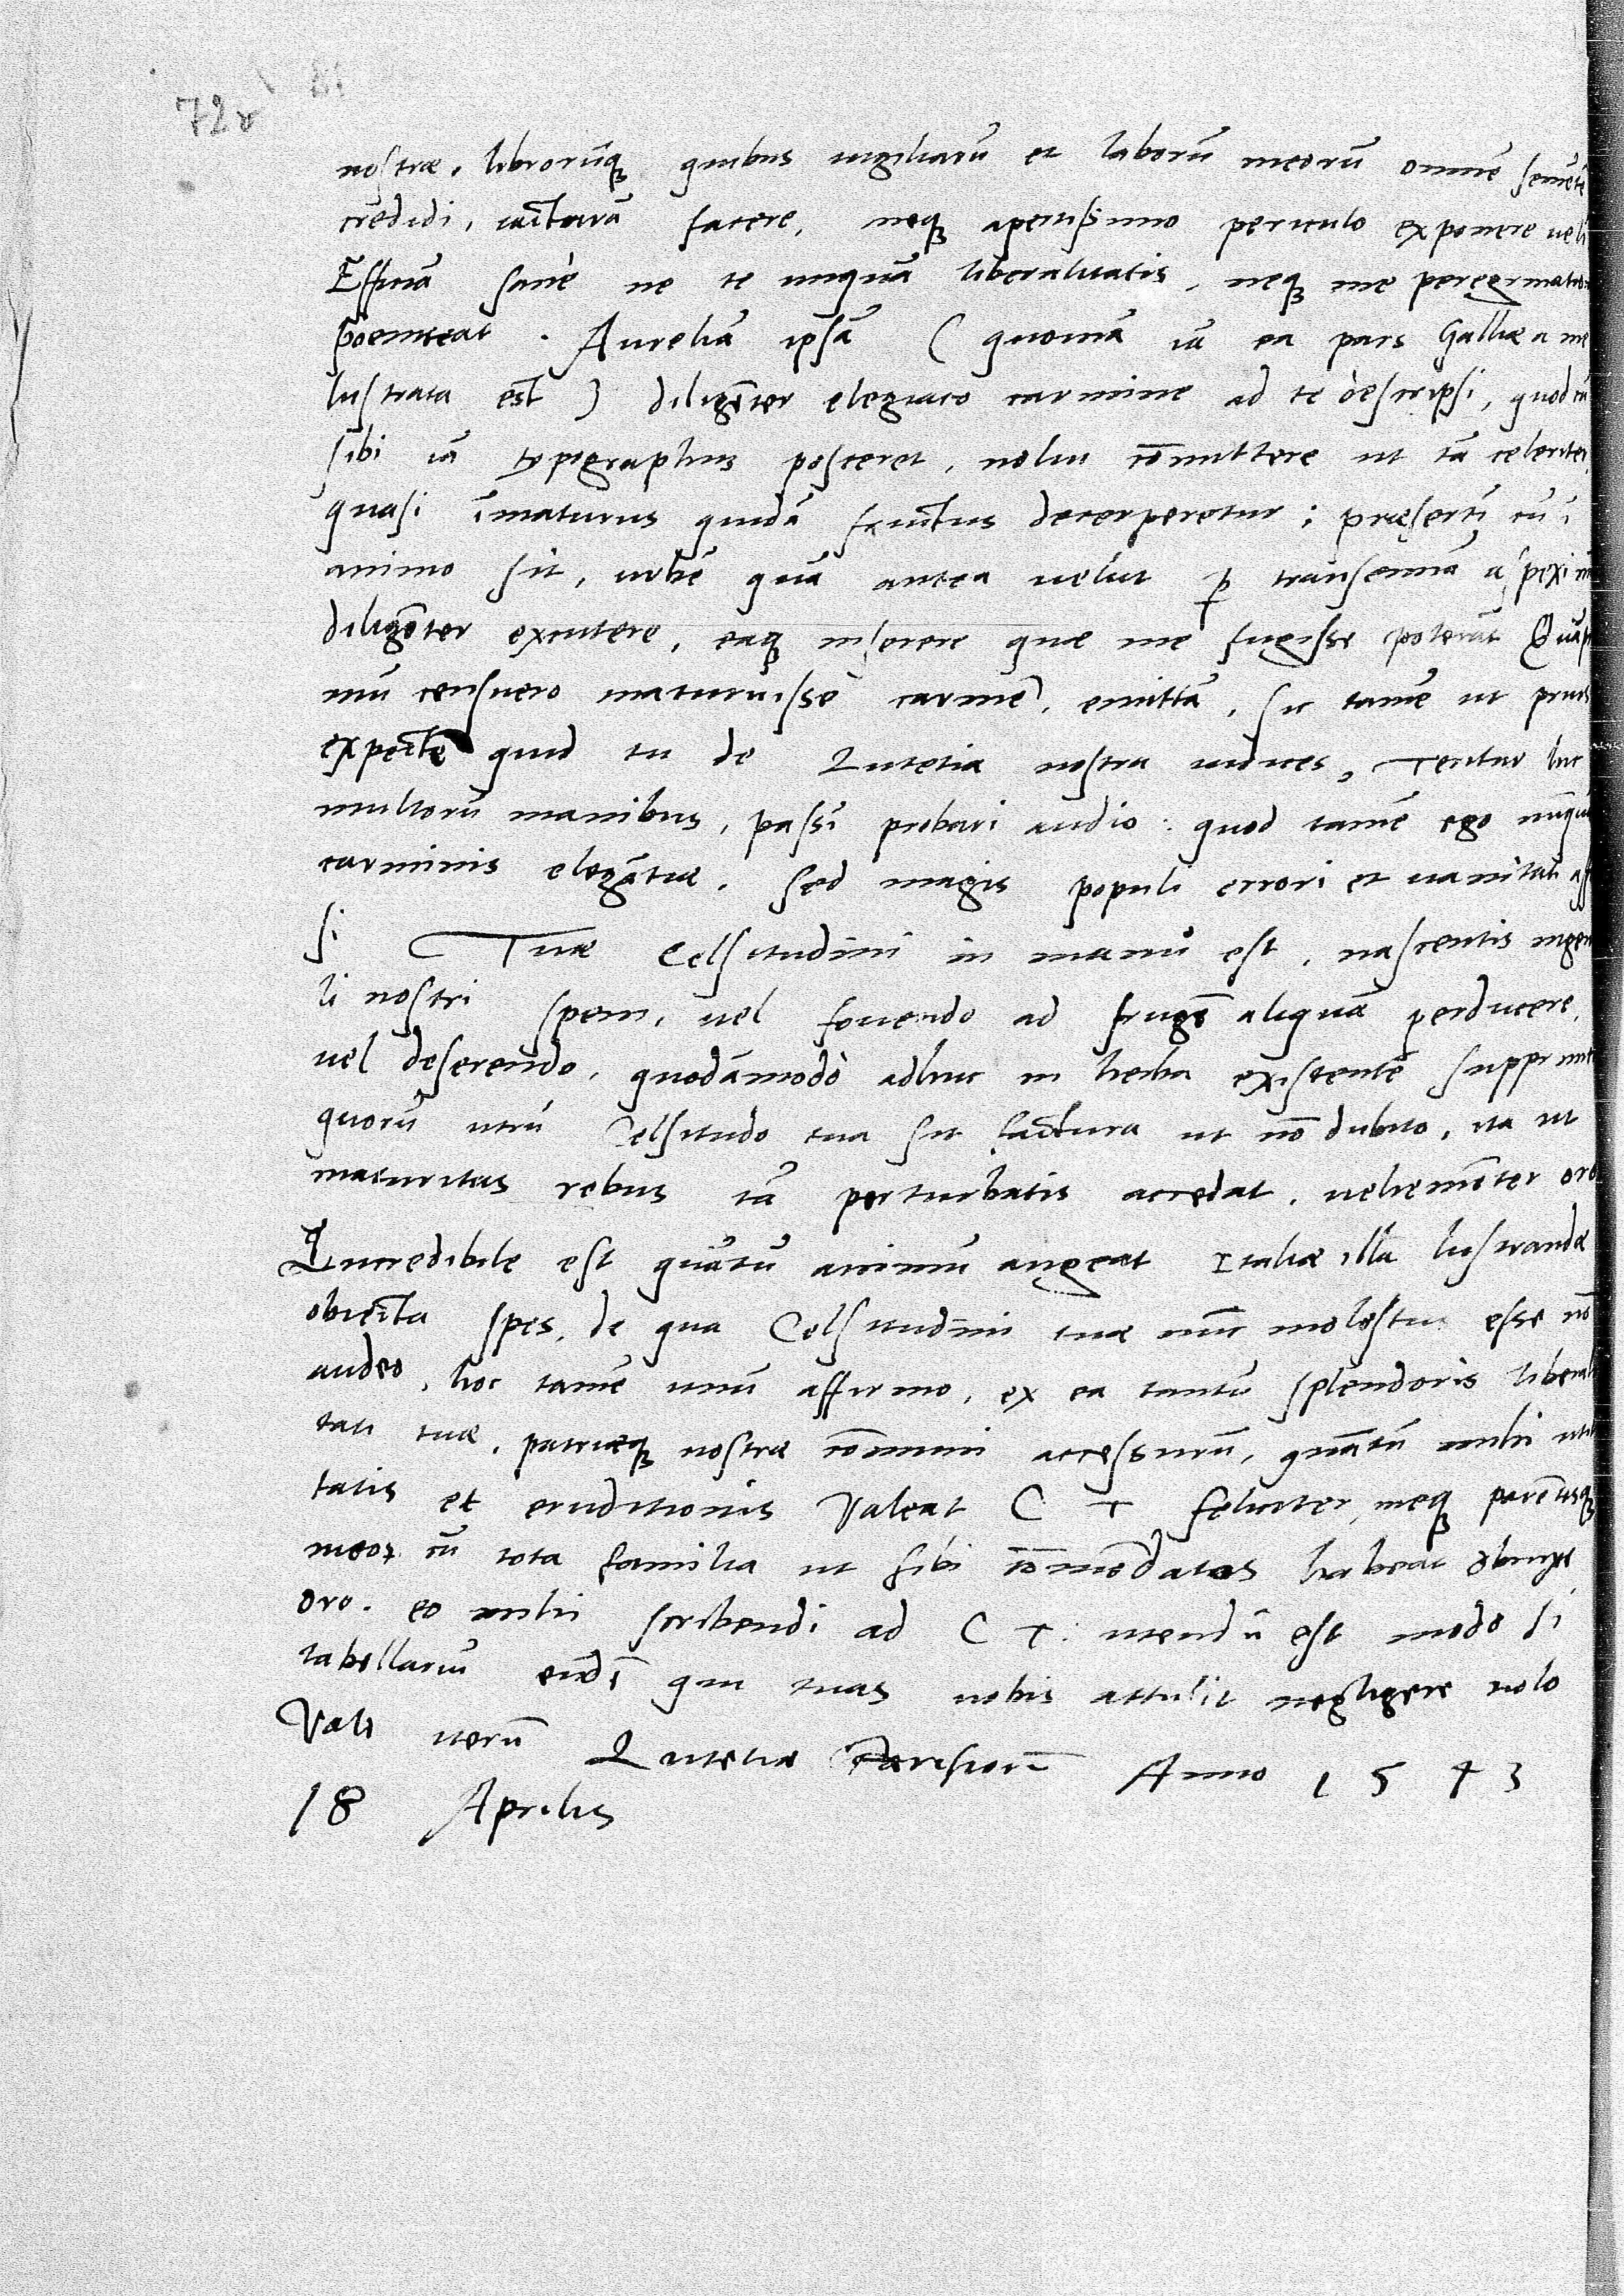 72v
nostrae, librorūq₃ quibus vigiliarū et laborū meorū omnē semētē
credidi, iacturā facere, neq₃ apertissimo periculo exponere veli
Efficiā sanè ne te unquā liberalitatis, neq₃ me peregrinatio
poeniteat. Aureliā ipsā (quoniā iā ea pars Galliae a me
lustrata est) diligēter elegiaco carmine ad te descripsi, quod cū
sibi iā typographus posceret, nolui cōmittere ut tā celeriter,
quasi īmaturus quidā fructus decerperetur; praesertī cū ī
animo sit, urbē quā antea velut ꝑ transennā aspexi
diligēter excutere, eaq₃ inserere quae me fugisse poterāt Quāp
mū censuero maturuisse carmē, emittā, sic tamē ut prius
expectē quid tu de Lutetia nostra iudices, Teritur hic
multorū manibus, passī probari audio: quod tamē ego nūquā
carminis elegātiae, sed magis populi errori et vanitati
si Tuae Celsitudini in manu est, nascentis ingen
li nostri spem, vel fovendo ad frugē aliquā perducere,
vel deserendo, quodāmodò adhuc in herba existentē supprim
quorū utrū Celsitudo tua sit factura ut nō dubito, ita ut
maturitas rebus tā perturbatis accedat, vehemēter oro
Incredibile est quātū animū angeat Italiae illa lustrandae
obiecta spes, de qua Celsitudini tuae nūc molestus esse nō
audeo, hoc tamē unū affirmo, ex ea tantū splendoris liberali
tati tuae, patriaeq₃ nostrae cōmuni accessurū, quātū mihi utili
tatis et eruditionis Valeat C T feliciter, meq₃ parētesq₃
meos cū tota familia ut sibi cōmēdatos habeat obnixe
oro. eo mihi scribendi ad C T. utendū est modo si
tabellariū eūdē qui tuas nobis attulit negligere nolo
Vale iterū Lutetiae Parisiorū Anno 1543
18 Aprilis